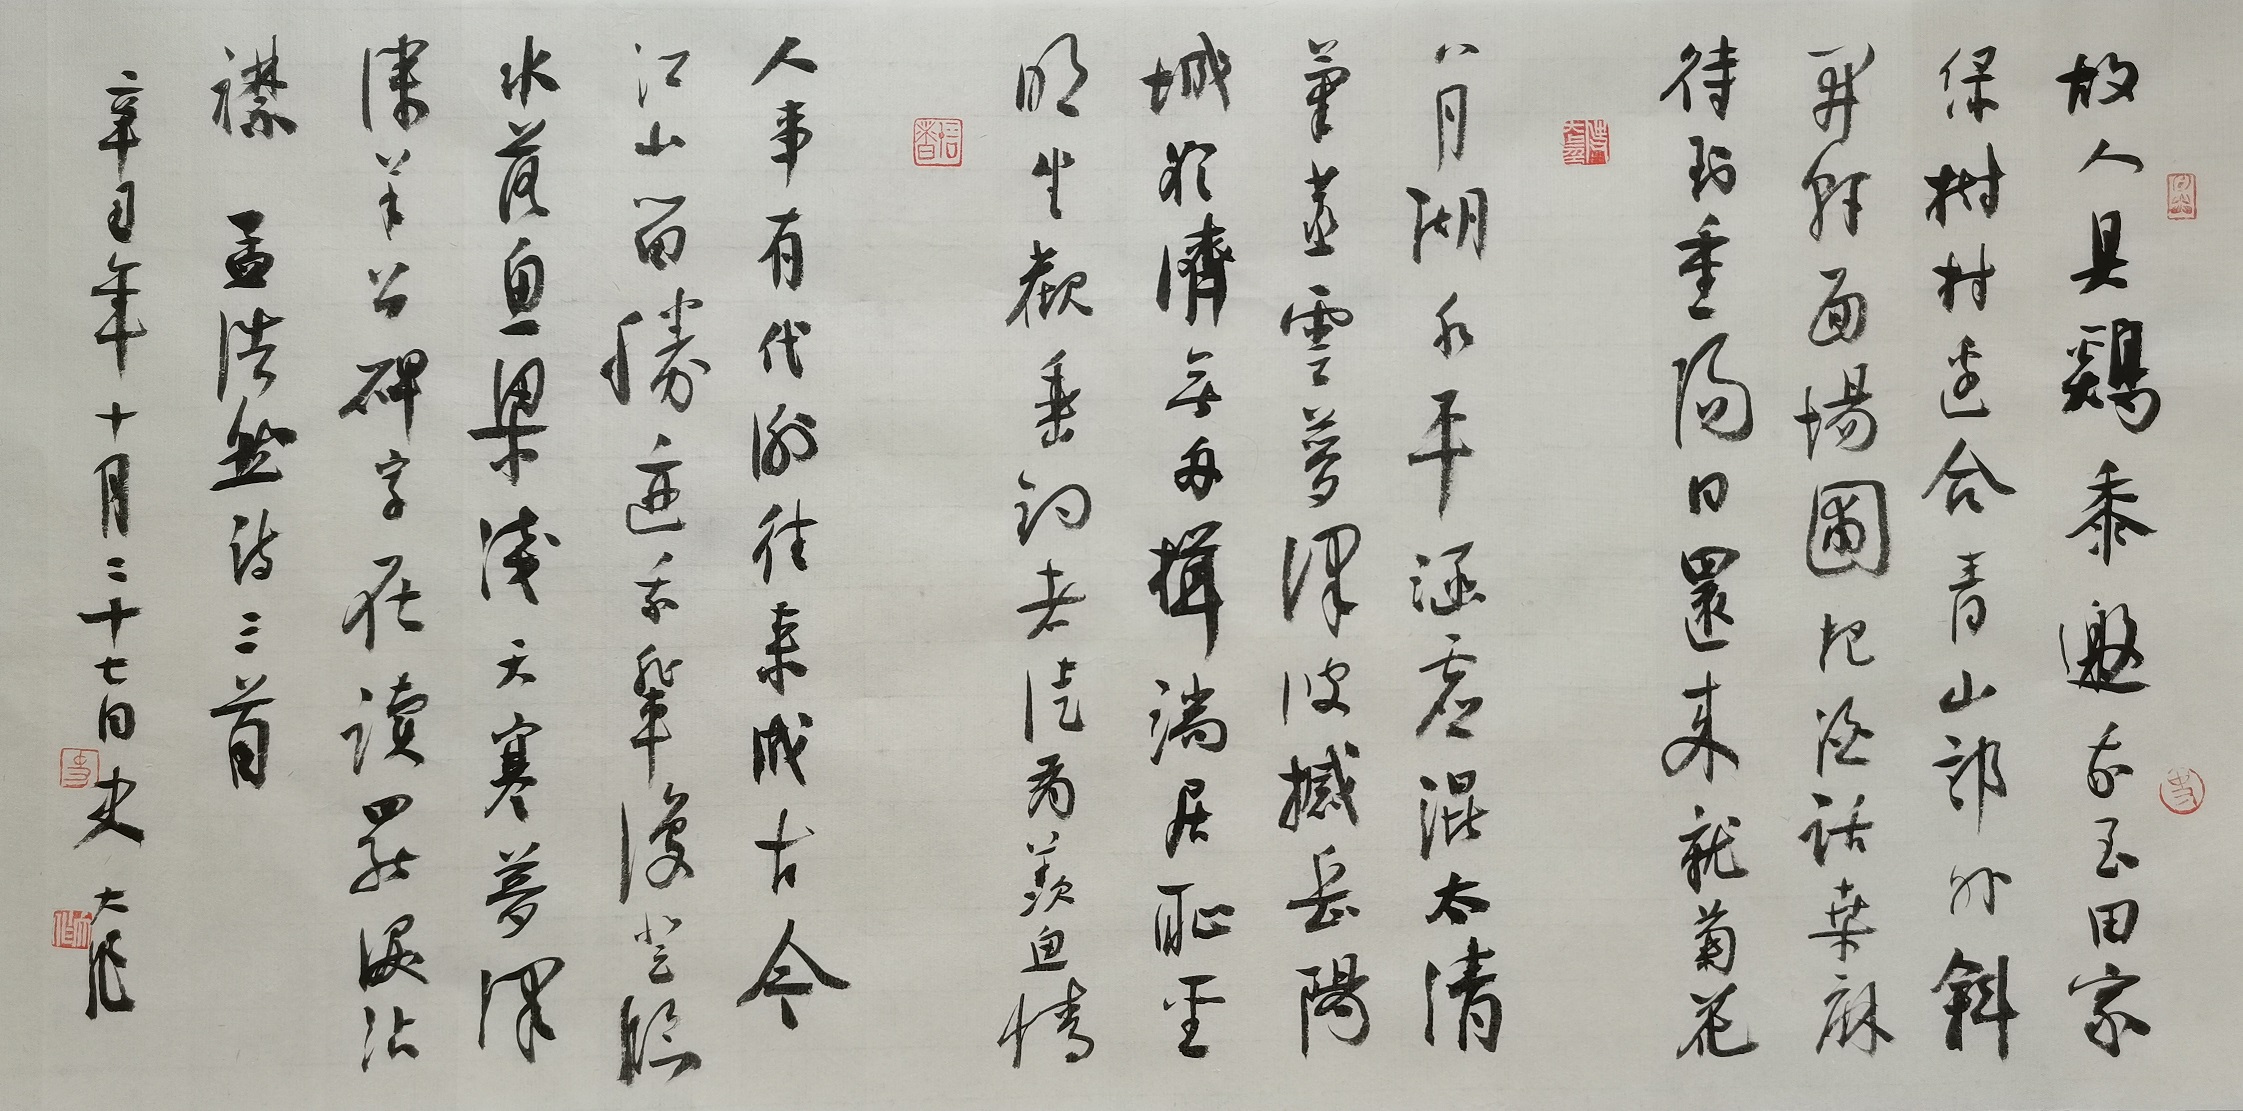 故人具鷄黍邀我至田家
綠樹村邊合青山郭外斜
開軒面場圃把酒話桑麻
待到重陽日還來就菊花
八月湖水平涵虛混太清
氣蒸雲夢澤波撼岳陽
城欲濟無舟楫端居恥聖
明坐觀垂釣者徒有羨魚情
人事有代謝往來成古今
江山留勝迹我輩復登臨
水落魚梁淺天寒夢澤
深羊公碑字在讀罷淚沾
襟 孟浩然詩三首
辛丑年十月二十七日史大